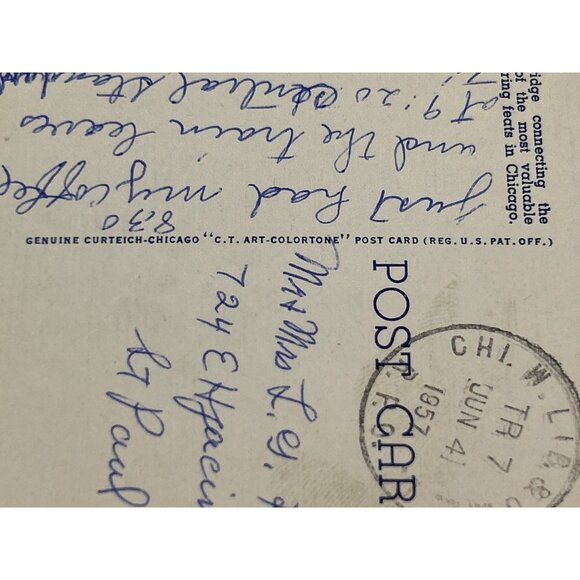 idge connecting the
of the most valuable
ring feats in Chicago.
Just had my coffee
8,30
and the train leaves
at 9:20 central standard
GENUINE CURTEICH-CHICAGO "C.T. ART-COLORTONE" POST CARD (REG. U.S. PAT. OFF.)
POST CAR
CHI. W. LIB. &
TR 7
JUN 4
1957
Mr & Mrs L. G.
724 E Hyacin
St Paul